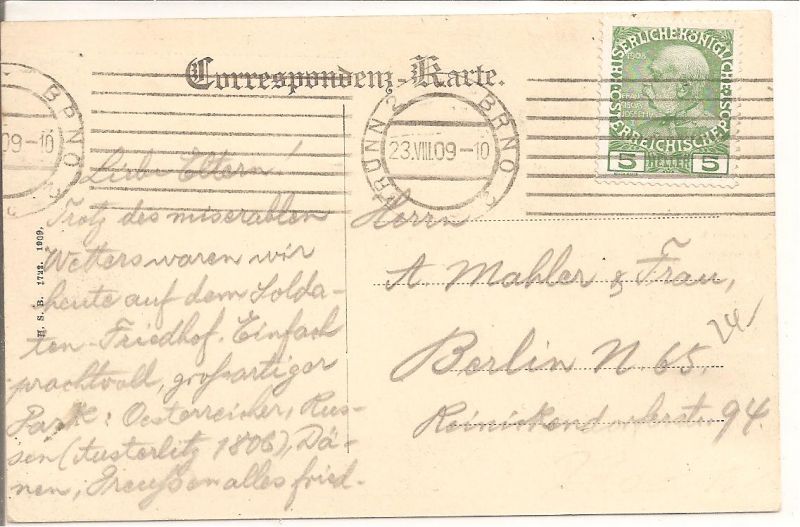 Correspondenz-Karte.
BRÜNN 2 BRNO
23.VIII.09-10
BRNO
09-10
KAISERLICHE KÖNIGLICHE
ÖSTERREICHISCHE POST
1908
5 HELLER 5
Liebe Eltern!
Trotz des miserablen
Wetters waren wir
heute auf dem Solda-
ten-Friedhof. Einfach
prachtvoll, großartiger
Park: Oesterreicher, Rus-
sen (Austerlitz 1806), Dä-
nen, Preußen alles fried-
H. S. B. 1722. 1909.
Herrn
A. Mahler & Frau,
Berlin N. 65,
Reinickendorferstr. 94.
24